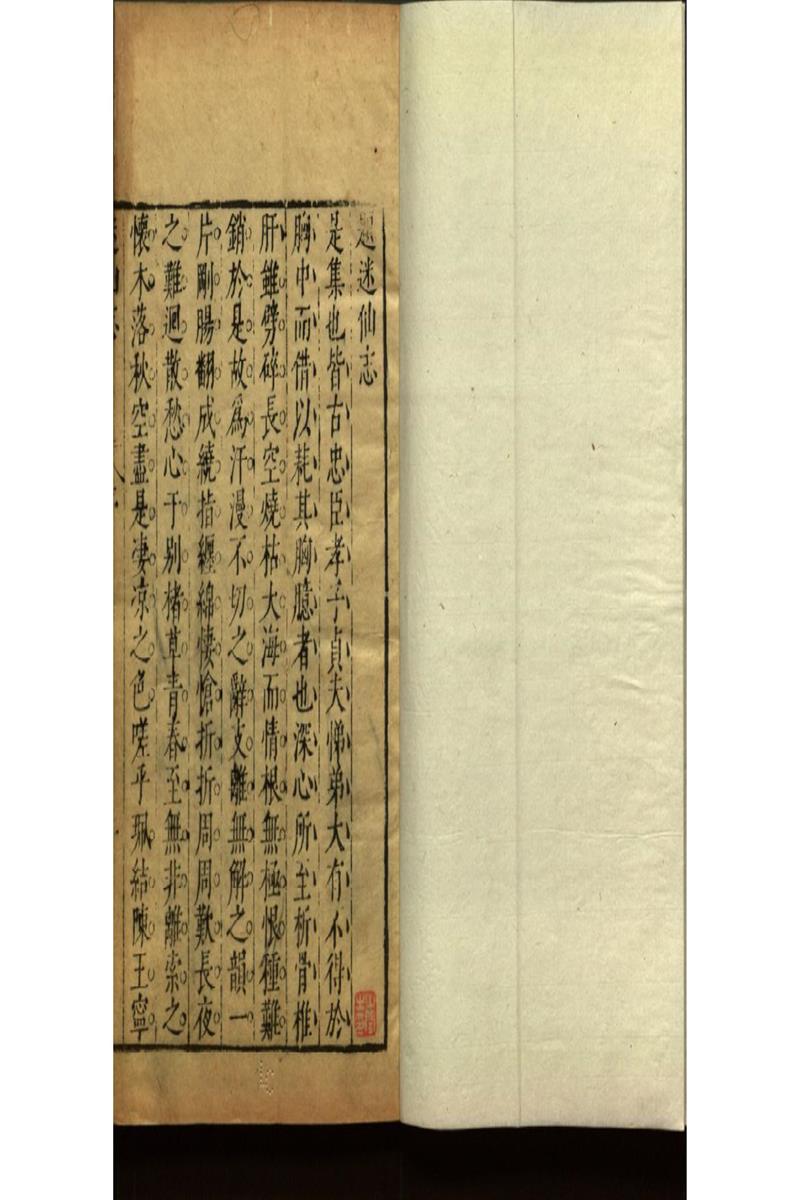 題迷仙志
是集也皆古忠臣孝子貞夫悌弟大有不得於
胸中而借以耗其胸臆者也深心所至析骨椎
肝錐劈碎長空燒枯大海而情根無極恨種難
銷於是故爲汗漫不切之辭支離無解之韻一
片剛腸翻成繞指纏綿悽愴折折周周歎長夜
之難迴散愁心于别楮草青春至無非離索之
懷木落秋空盡是凄凉之色嗟乎珮結陳王寧